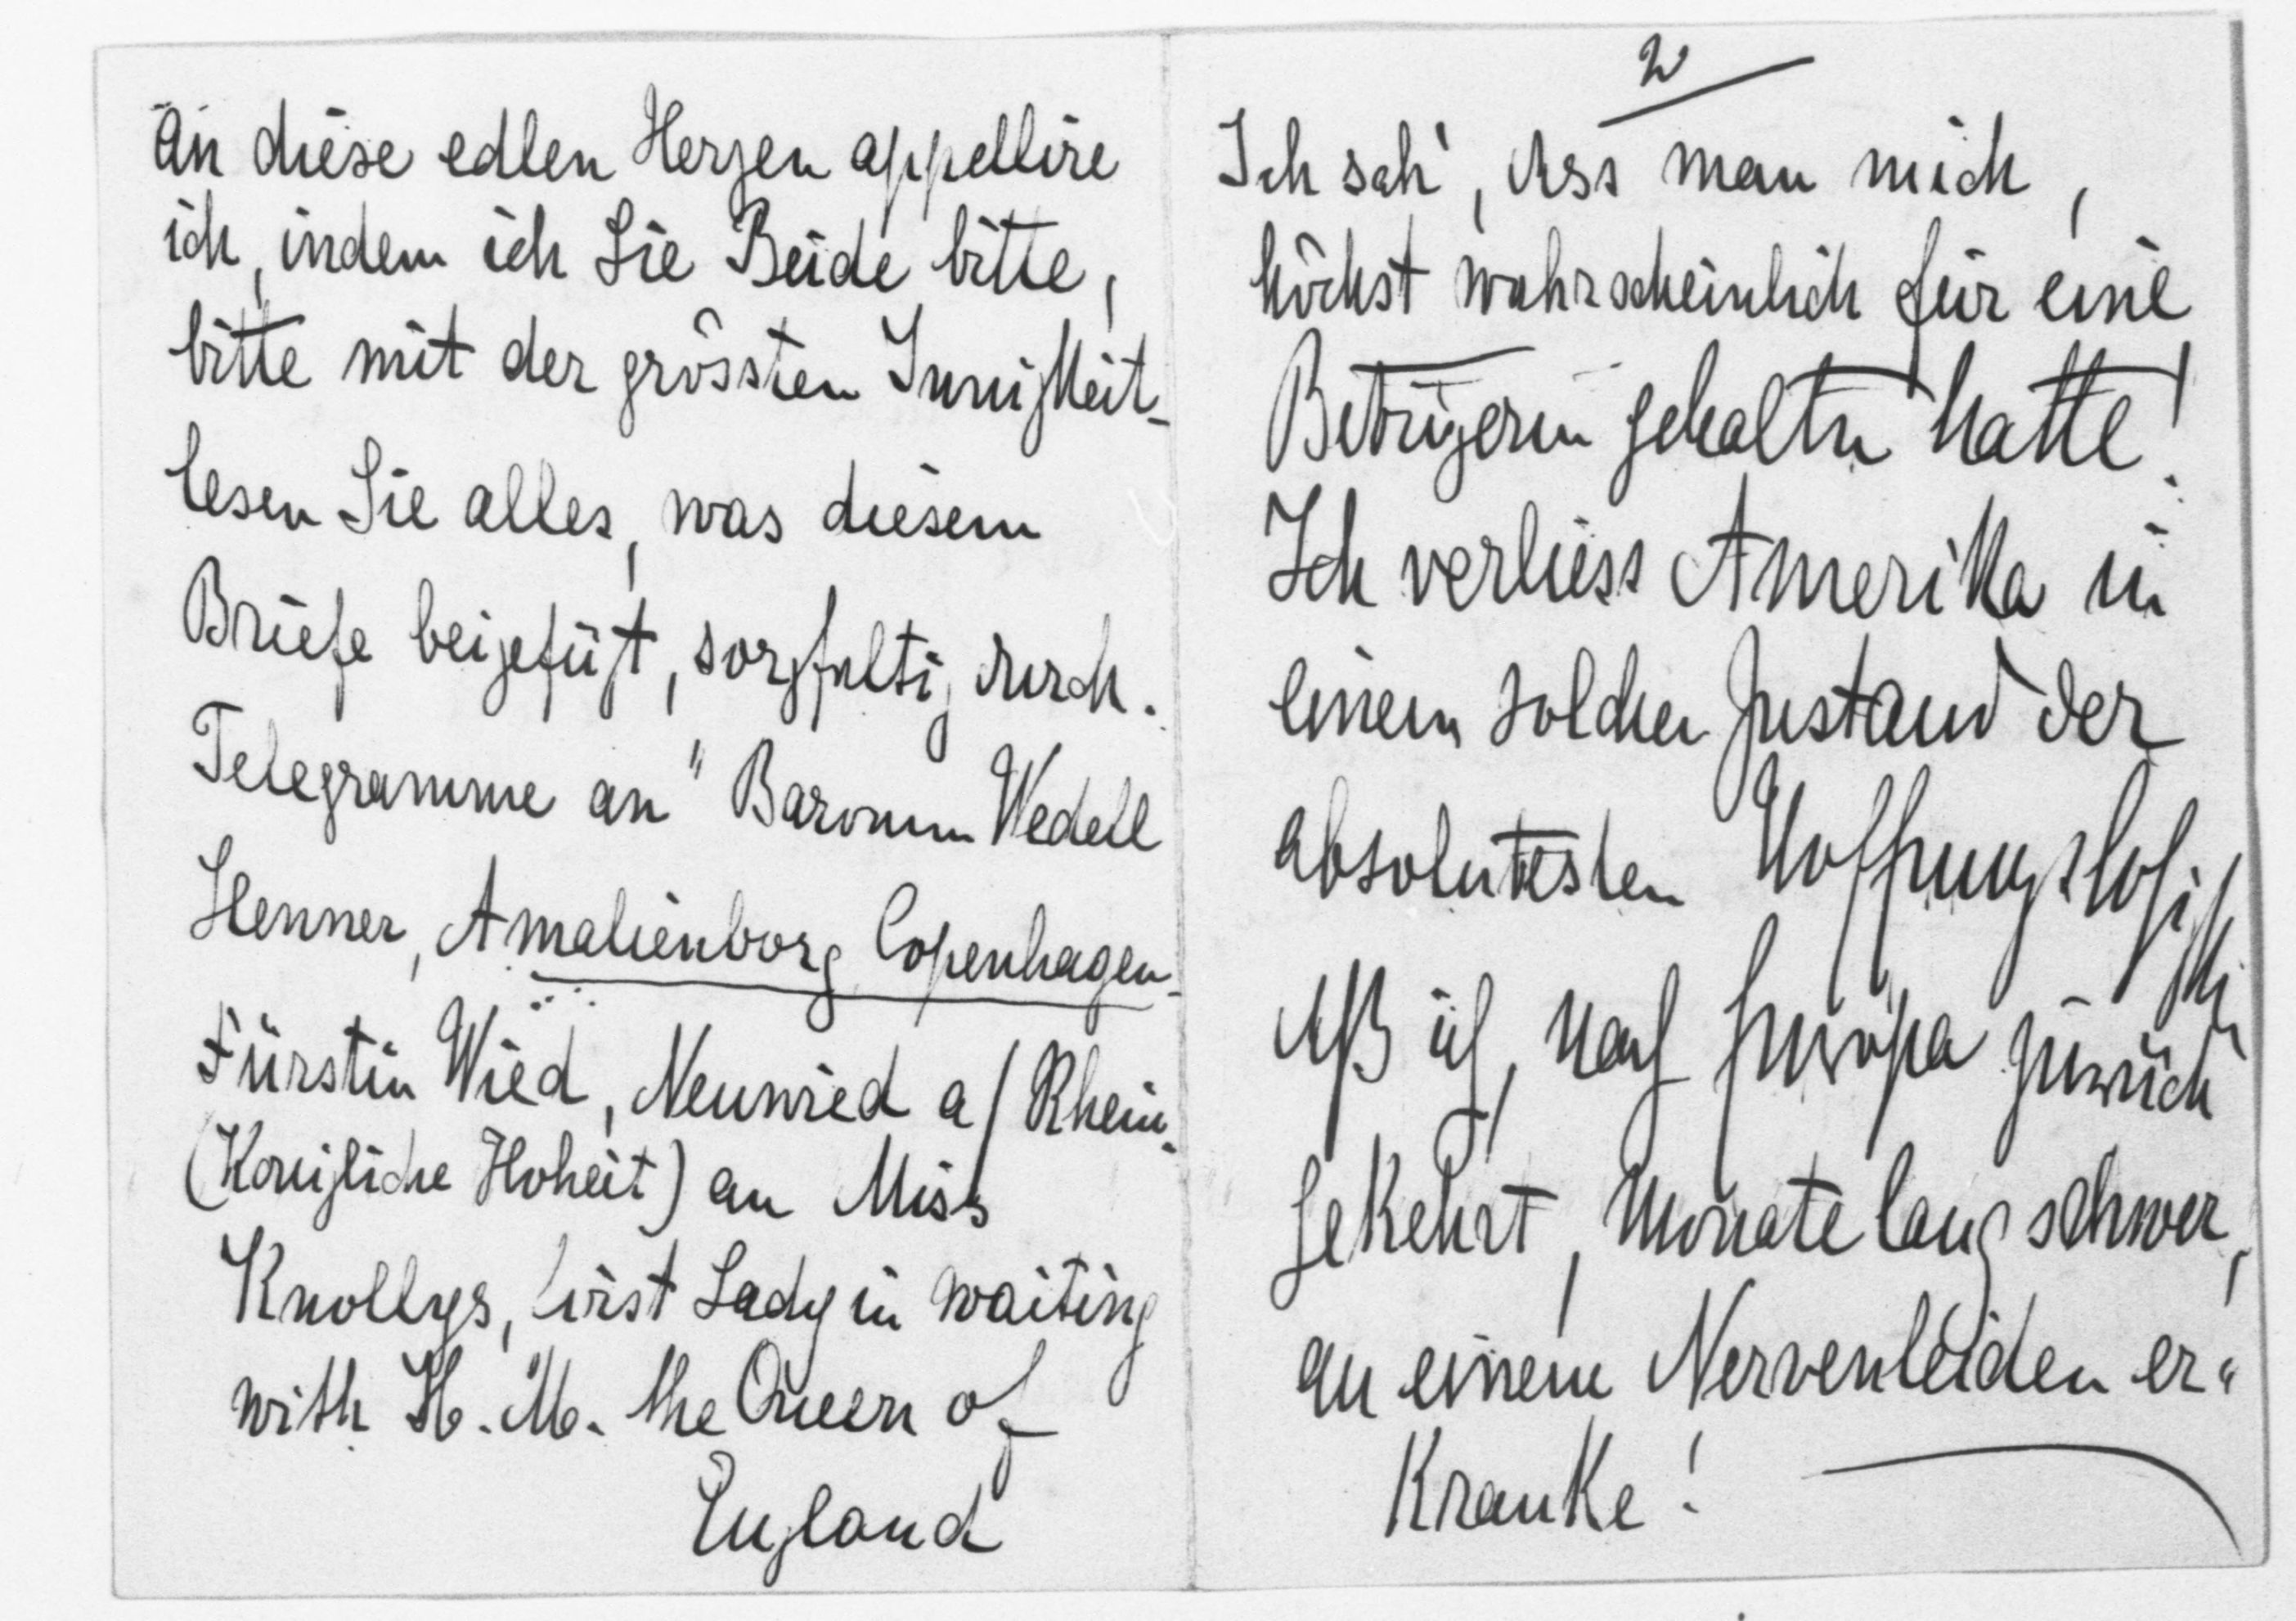 An diese edlen Herzen appellire
ich, indem ich Sie Beide bitte,
bitte mit der grössten Innigkeit-
lesen Sie alles, was diesem
Briefe beigefügt, sorgfaltig durch.
Telegramme an " Baronin Wedell
Henner, Amalienborg Copenhagen-
Fürstin Wied, Neuwied a/Rhein.
(Konigliche Hoheit) an Miss
Knollys, first Lady in waiting
with H. M. the Queen of
England
2
Ich sah', dass man mich,
höchst wahrscheinlich für eine
Betrügerin gehalten hatte!
Ich verliess Amerika in
einem solchen Zustand der
absolutesten Hoffnungslosigkeit
daß ich, nach Europa zurück
gekehrt, Monate lang schwer,
an einem Nervenleiden er-
kranke!